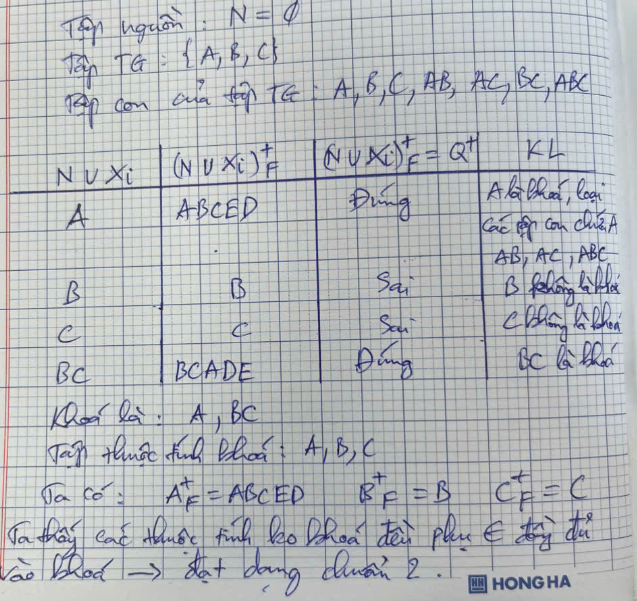 Tập nguồn : N = ∅
Tập TG : {A, B, C}
Tập con của tập TG : A, B, C, AB, AC, BC, ABC
N ∪ Xi | (N ∪ Xi)⁺F | (N ∪ Xi)⁺F = Q⁺ | KL
A | ABCED | Đúng | A là khoá, loại
các tập con chứa A
AB, AC, ABC
B | B | Sai | B không là khoá
C | C | Sai | C không là khoá
BC | BCADE | Đúng | BC là khoá
Khoá là : A, BC
Tập thuộc tính khoá : A, B, C
Ta có : A⁺F = ABCED B⁺F = B C⁺F = C
Ta thấy các thuộc tính ko khoá đều phụ ∈ đầy đủ
vào khoá → đạt dạng chuẩn 2.
HH HONG HA